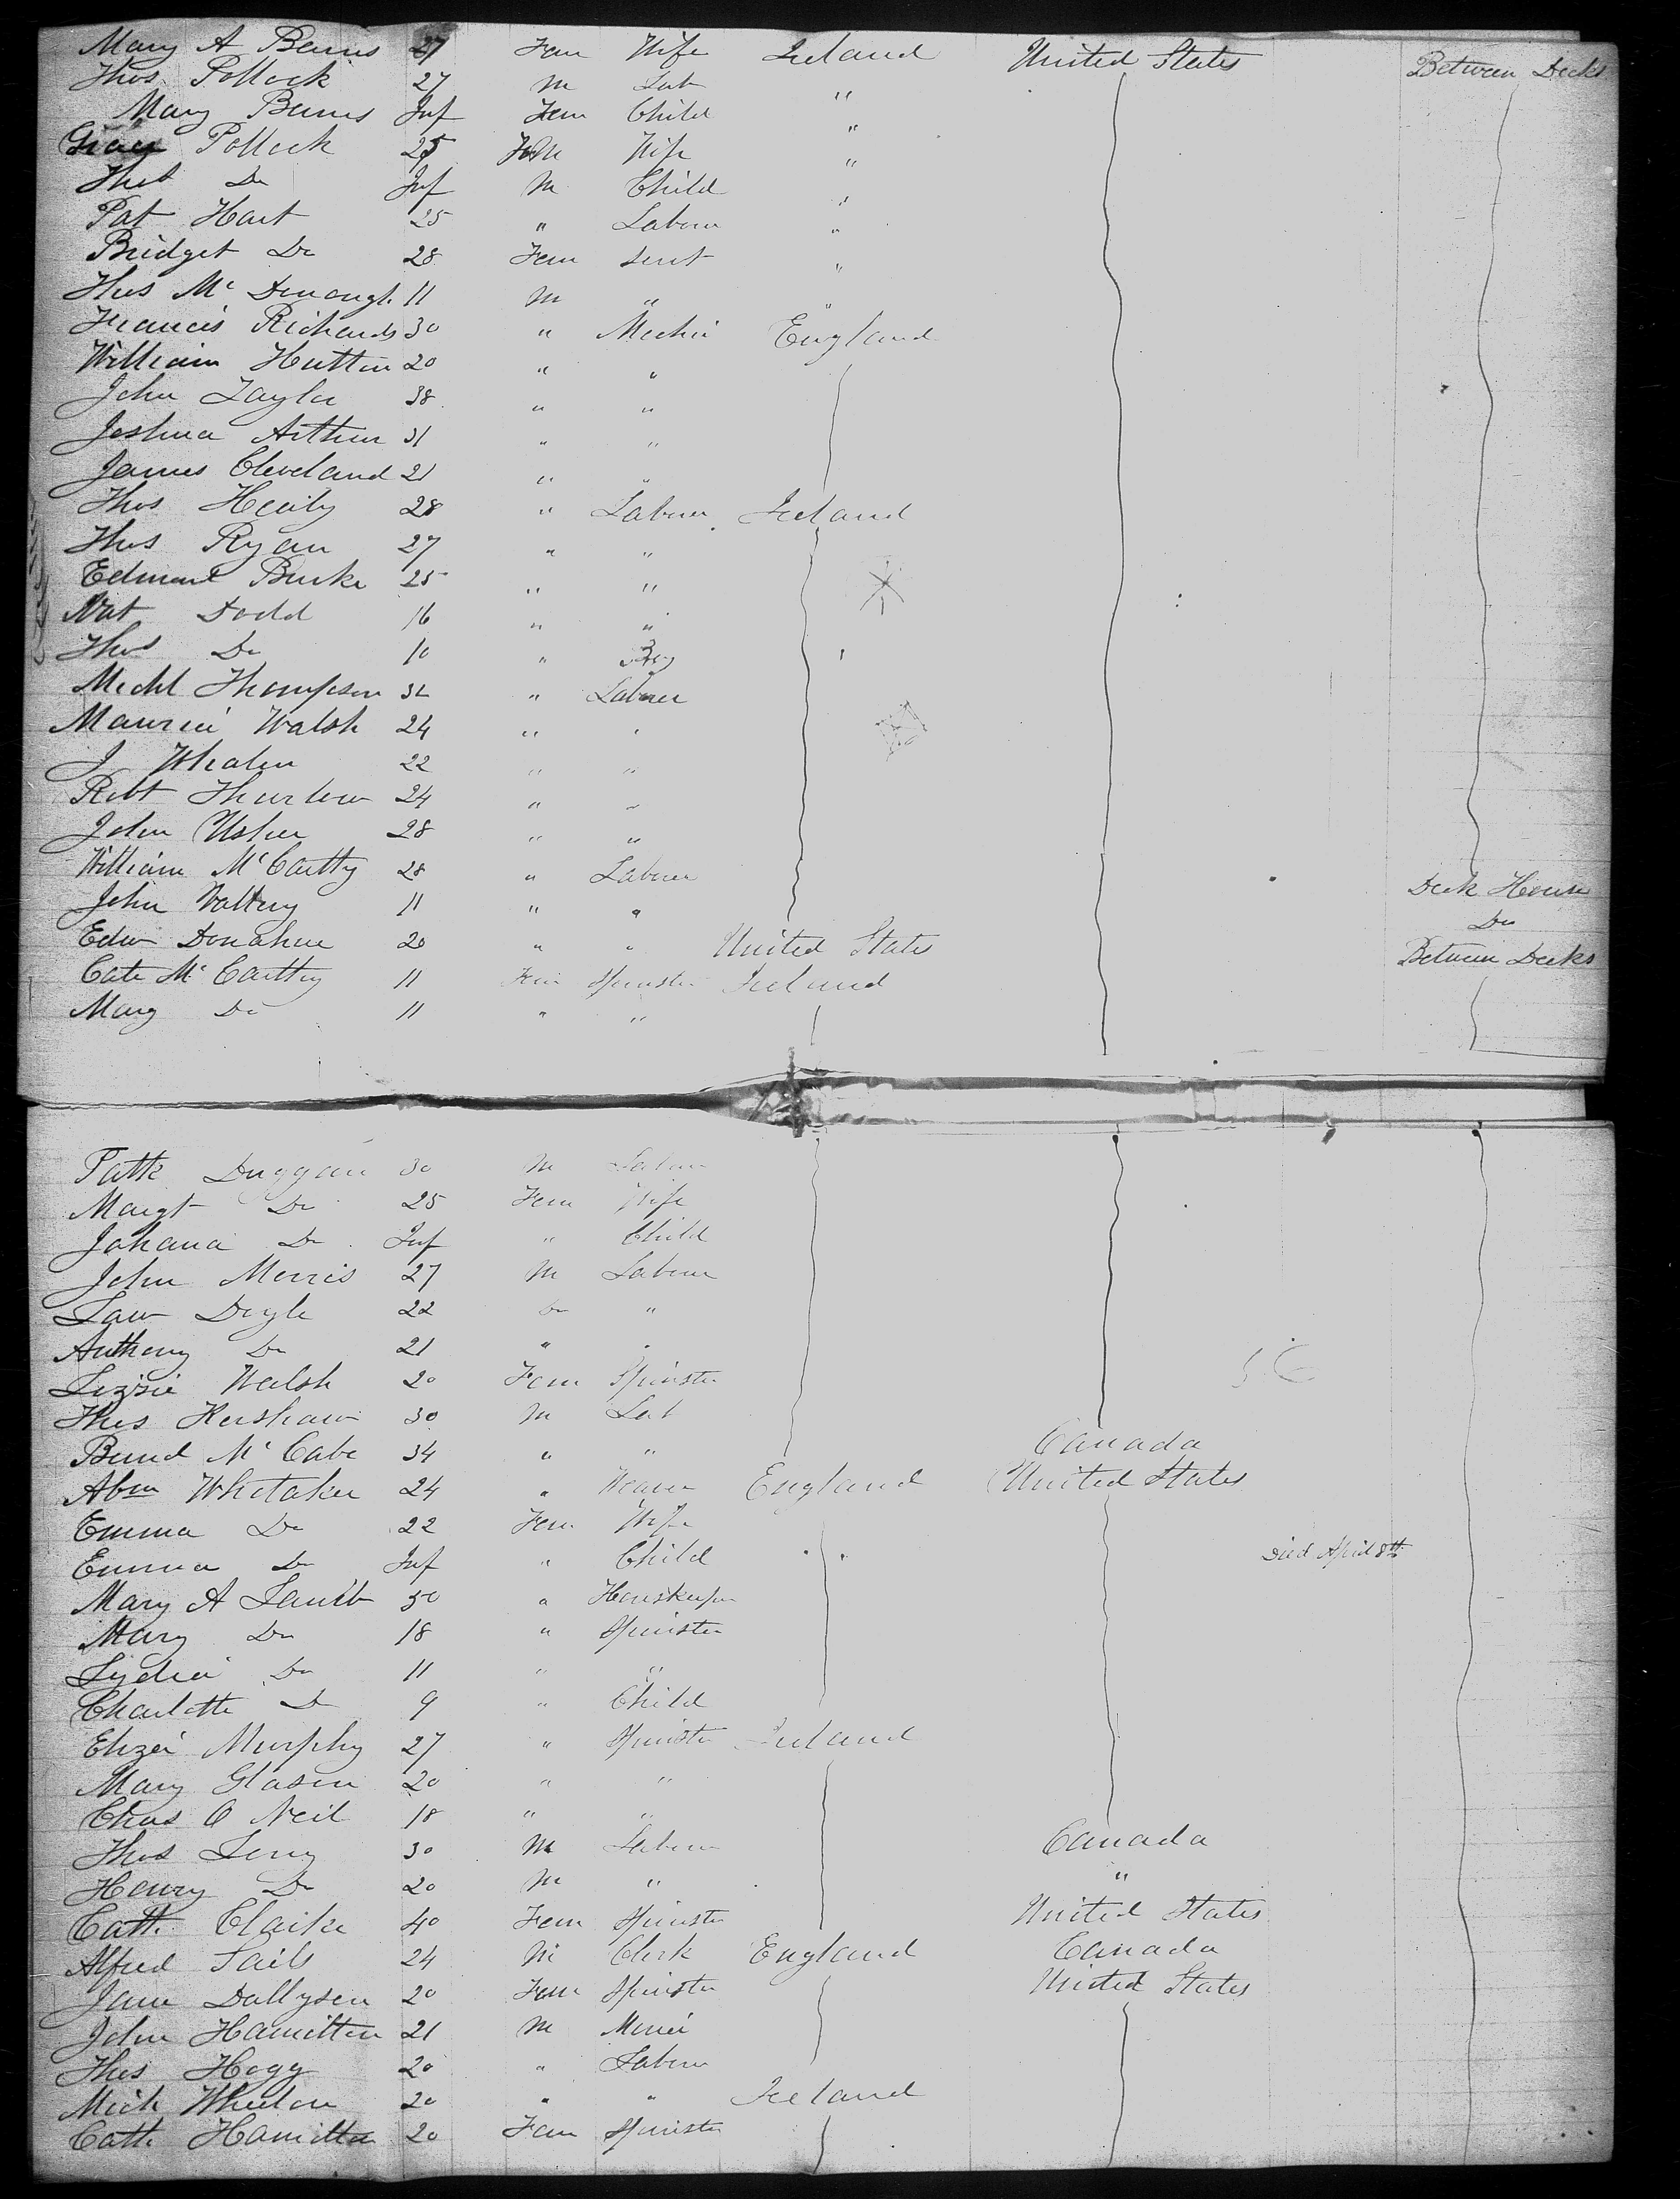 Mary A Barns 27 Fem Wife Ireland United States Between Decks
Thos Pollock 27 M Lab "
Mary Barns Inf Fem Child "
Grace Pollock 25 Fem Wife "
Thos Do Inf M Child "
Pat Hart 25 " Labour "
Bridget Do 28 Fem Servt "
Thos McDonough 11 M " "
Francis Richards 30 " Mechn England
William Hutton 20 " "
John Taylor 38 " "
Joshua Arthur 31 " "
James Cleveland 21 " "
Thos Heily 28 " Labour Ireland
Thos Ryan 27 " "
Edmund Burke 25 " "
Nat Dodd 16 " "
Thos Do 10 " Boy
Michl Thompson 32 " Labour
Maurice Walsh 24 " "
J Whalen 22 " "
Robt Thurlow 24 " "
John Usher 28 " "
William McCartty 28 " Labour Deck House
John 11 " " Do
Edw Donahue 20 " " United States Between Decks
Cate McCartty 11 Fem Spinster Ireland
Mary Do 11 " "
Patk Duggan 30 M Labour
Margt Do 25 Fem Wife
Johana Do Inf " Child
John Morris 27 M Labour
Law Doyle 22 Do "
Anthony Do 21 " "
Lizzie Walsh 20 Fem Spinster
Thos Kershaw 30 M Lab
Bernd McCabe 34 " " Canada
Abm Whitaker 24 " Weaver England United States
Emma Do 22 Fem Wife
Emma Do Inf " Child Died April 8th
Mary A 50 " Houskeeper
Mary Do 18 " Spinster
Lydia Do 11 " "
Charlotte Do 9 " Child
Eliza Murphy 27 " Spinster Ireland
Mary Glason 20 " "
Chas O Neil 18 " "
Thos 30 M Labour Canada
Henry Do 20 M " "
Cath Clarke 40 Fem Spinster United States
Alfred Sails 24 M Clerk England Canada
Jane Dallyson 20 Fem Spinster United States
John Hamilton 21 M Miner
Thos Hogg 20 " Labour
Mich Whelon 20 " " Ireland
Cath Hamilton 20 Fem Spinster